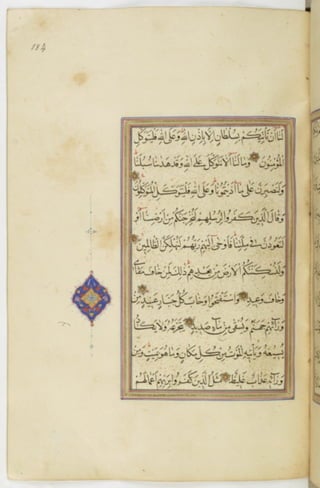 184
لنا ان ناتيكم بسلطان الا باذن الله وعلى الله فليتوكل
المؤمنون وما لنا الا نتوكل على الله وقد هدينا سبلنا
ولنصبرن على ما اذيتمونا وعلى الله فليتوكل المتوكلون
وقال الذين كفروا لرسلهم لنخرجنكم من ارضنا او
لتعودن في ملتنا فاوحى اليهم ربهم لنهلكن الظالمين
ولنسكننكم الارض من بعدهم ذلك لمن خاف مقامي
وخاف وعيد واستفتحوا وخاب كل جبار عنيد من
ورائه جهنم ويسقى من ماء صديد يتجرعه ولا يكاد
يسيغه وياتيه الموت من كل مكان وما هو بميت ومن
ورائه عذاب غليظ مثل الذين كفروا بربهم اعمالهم